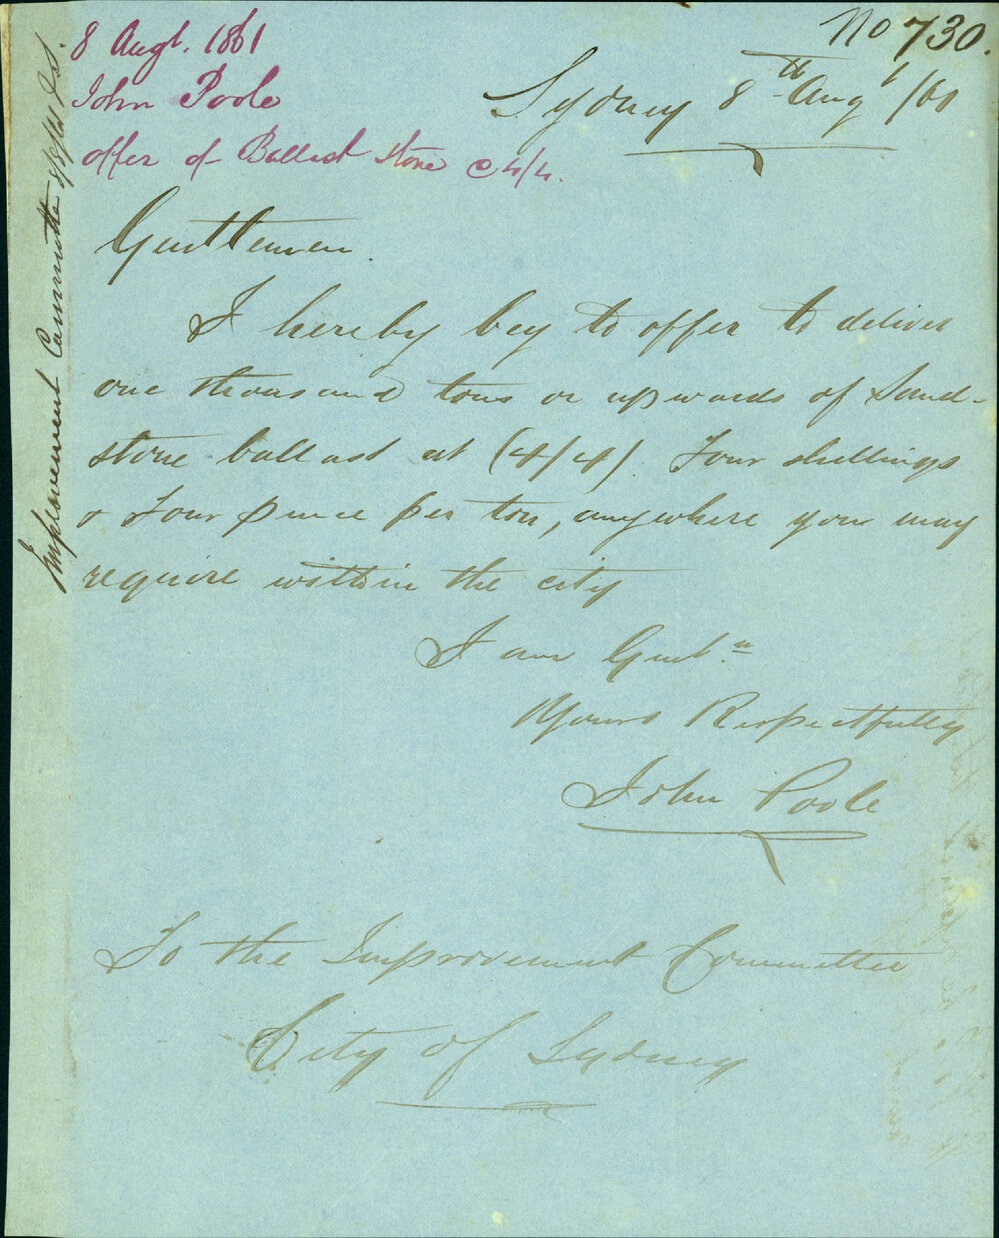 No 730.
8 Augt. 1861
John Poole
offer of Ballast Stone @ 4/4.
Improvement Committee 8/8/61
Sydney 8th Aug /61
Gentlemen.
I hereby beg to offer to deliver
one thousand tons or upwards of Sand-
stone ballast at (4/4) Four shillings
& Four pence per ton, anywhere you may
require within the city
I am Gent.n
Yours Respectfully
John Poole
To the Improvement Committee
City of Sydney